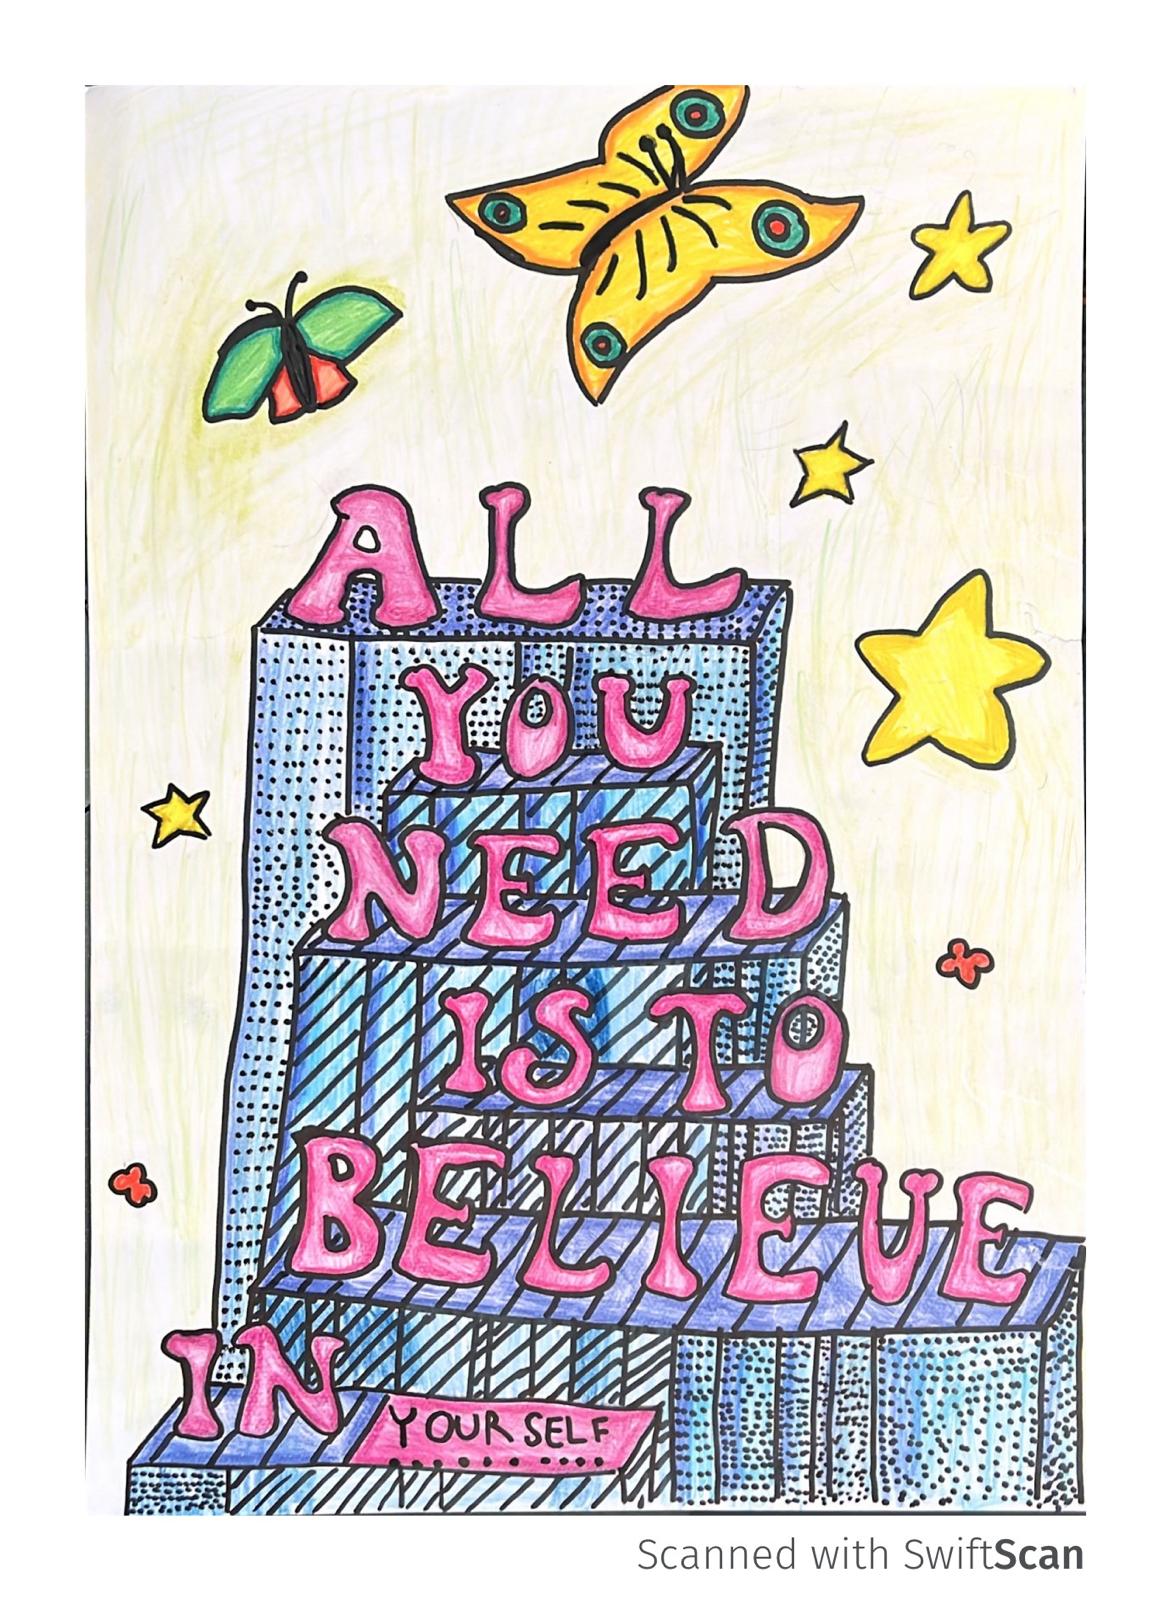 ALL
YOU
NEED
IS TO
BELIEVE
IN YOURSELF
Scanned with SwiftScan